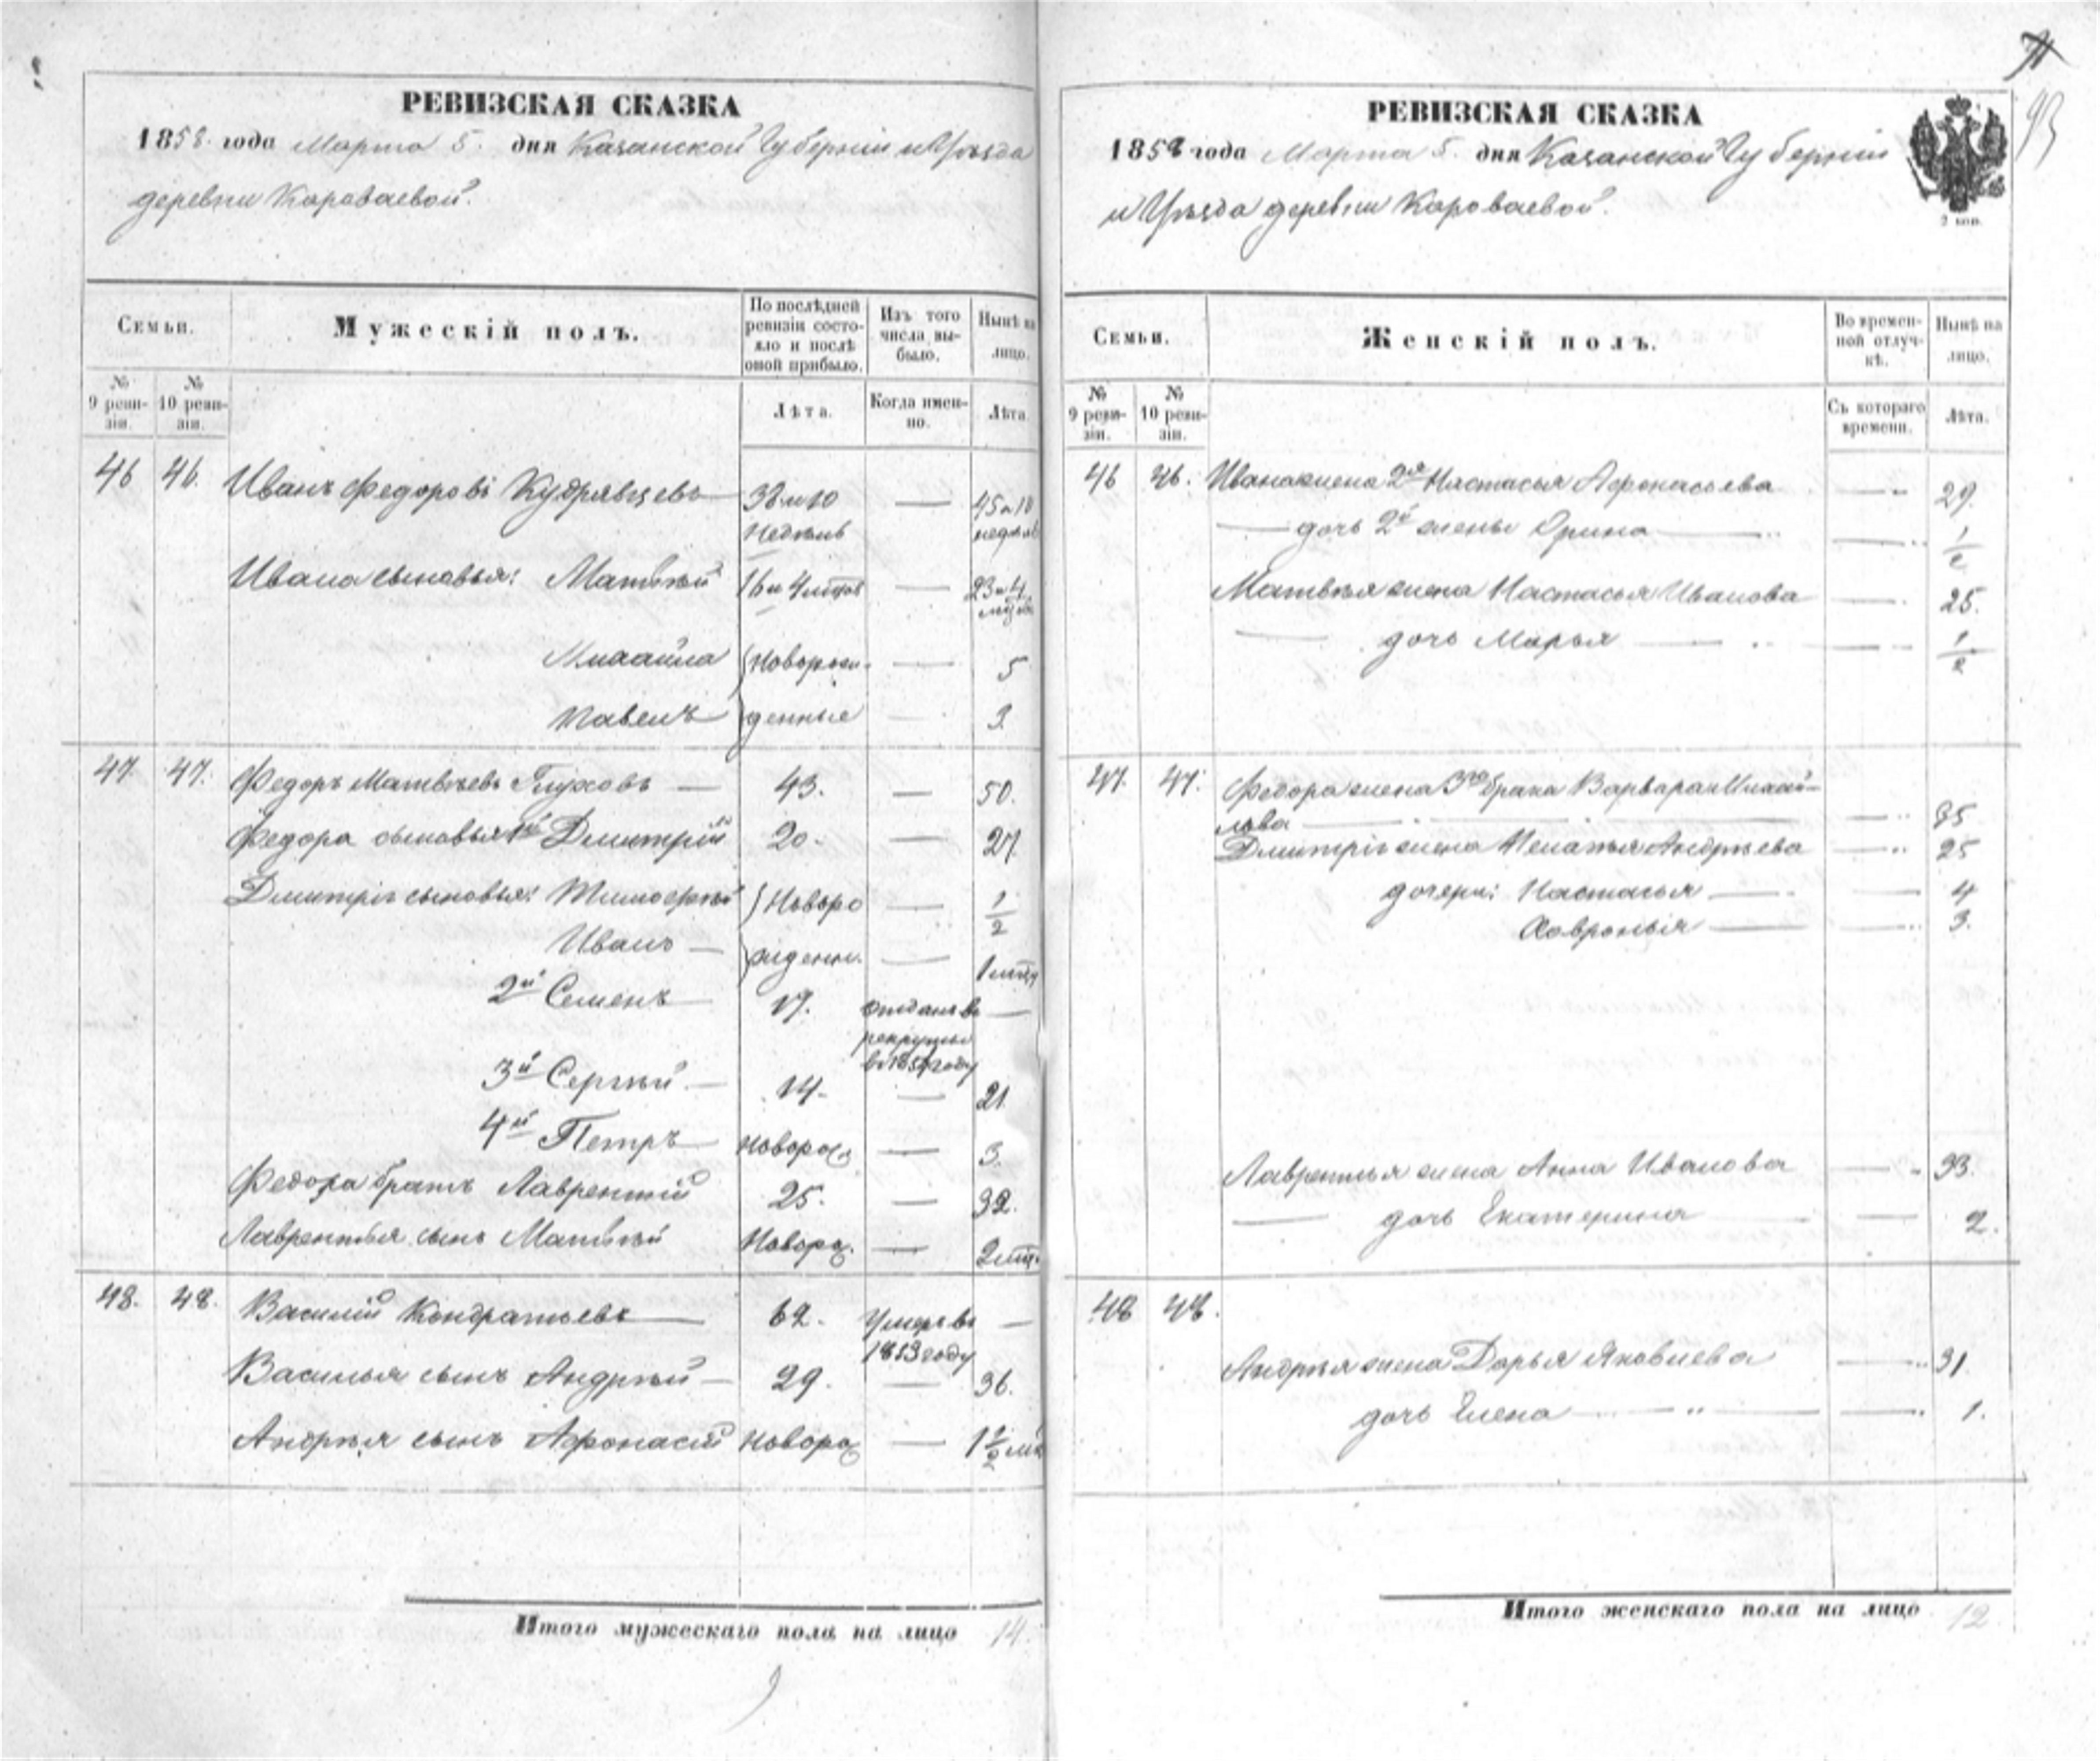 РЕВИЗСКАЯ СКАЗКА
1858 года Марта 5. дня Казанской Губерніи и Уѣзда
деревни Короваевой.
Семьи.
Мужескій полъ.
По послѣдней ревизіи состояло и послѣ оной прибыло.
Изъ того числа выбыло.
Нынѣ на лицо.
№ 9 ревизіи.
№ 10 ревизіи.
Лѣта.
Когда именно.
Лѣта.
46 46. Иванъ Федоровъ Кудрявцевъ 38 и 10 недѣль — 45 и 10 недѣль
Ивана сыновья: Матвѣй 16 и 4 — 23 и 4
Михайла Новорож- — 5
Павелъ денные — 2
47. 47. Федоръ Матвѣевъ Глуховъ — 43. — 50.
Федора сыновья 1й Дмитрій 20. — 27.
Дмитрія сыновья: Тимофей Новоро — 1/2
Иванъ — жденн. — 1
2й Семенъ — 17. отданъ въ рекруты въ 1854 году —
3й Сергѣй. — 14. — 21.
4й Петръ — Новорож — 3.
Федора братъ Лаврентій 25. — 32.
Лаврентья сынъ Матвѣй Новорож. — 2
48. 48. Василій Кондратьевъ — 62. Умеръ въ 1853 году —
Василья сынъ Андрей — 29. — 36.
Андрея сынъ Афонасій Новорож — 1 1/2
Итого мужескаго пола на лицо 14.
РЕВИЗСКАЯ СКАЗКА
1858 года Марта 5. дня Казанской Губерніи
и Уѣзда деревни Короваевой.
2 коп.
93
Семьи.
Женскій полъ.
Во временной отлучкѣ.
Нынѣ на лицо.
№ 9 ревизіи.
№ 10 ревизіи.
Съ котораго времени.
Лѣта.
46 46. Ивана жена 2я Настасья Афонасьева — 29.
— дочь 2й жены Орина — — 1/2
Матвѣя жена Настасья Иванова — 25.
— дочь Марья — — 1/2
47. 47. Федора жена 3го брака Варвара Михай-
лова — — 35
Дмитрія жена Пелагея Андрѣева — 25
дочери: Настасья — — 4
Ховронья — — 3.
Лаврентья жена Анна Иванова — 33.
— дочь Екатерина — — 2.
48 48.
Андрея жена Дарья Яковлева — 31.
дочь Елена — — 1.
Итого женскаго пола на лицо 12.